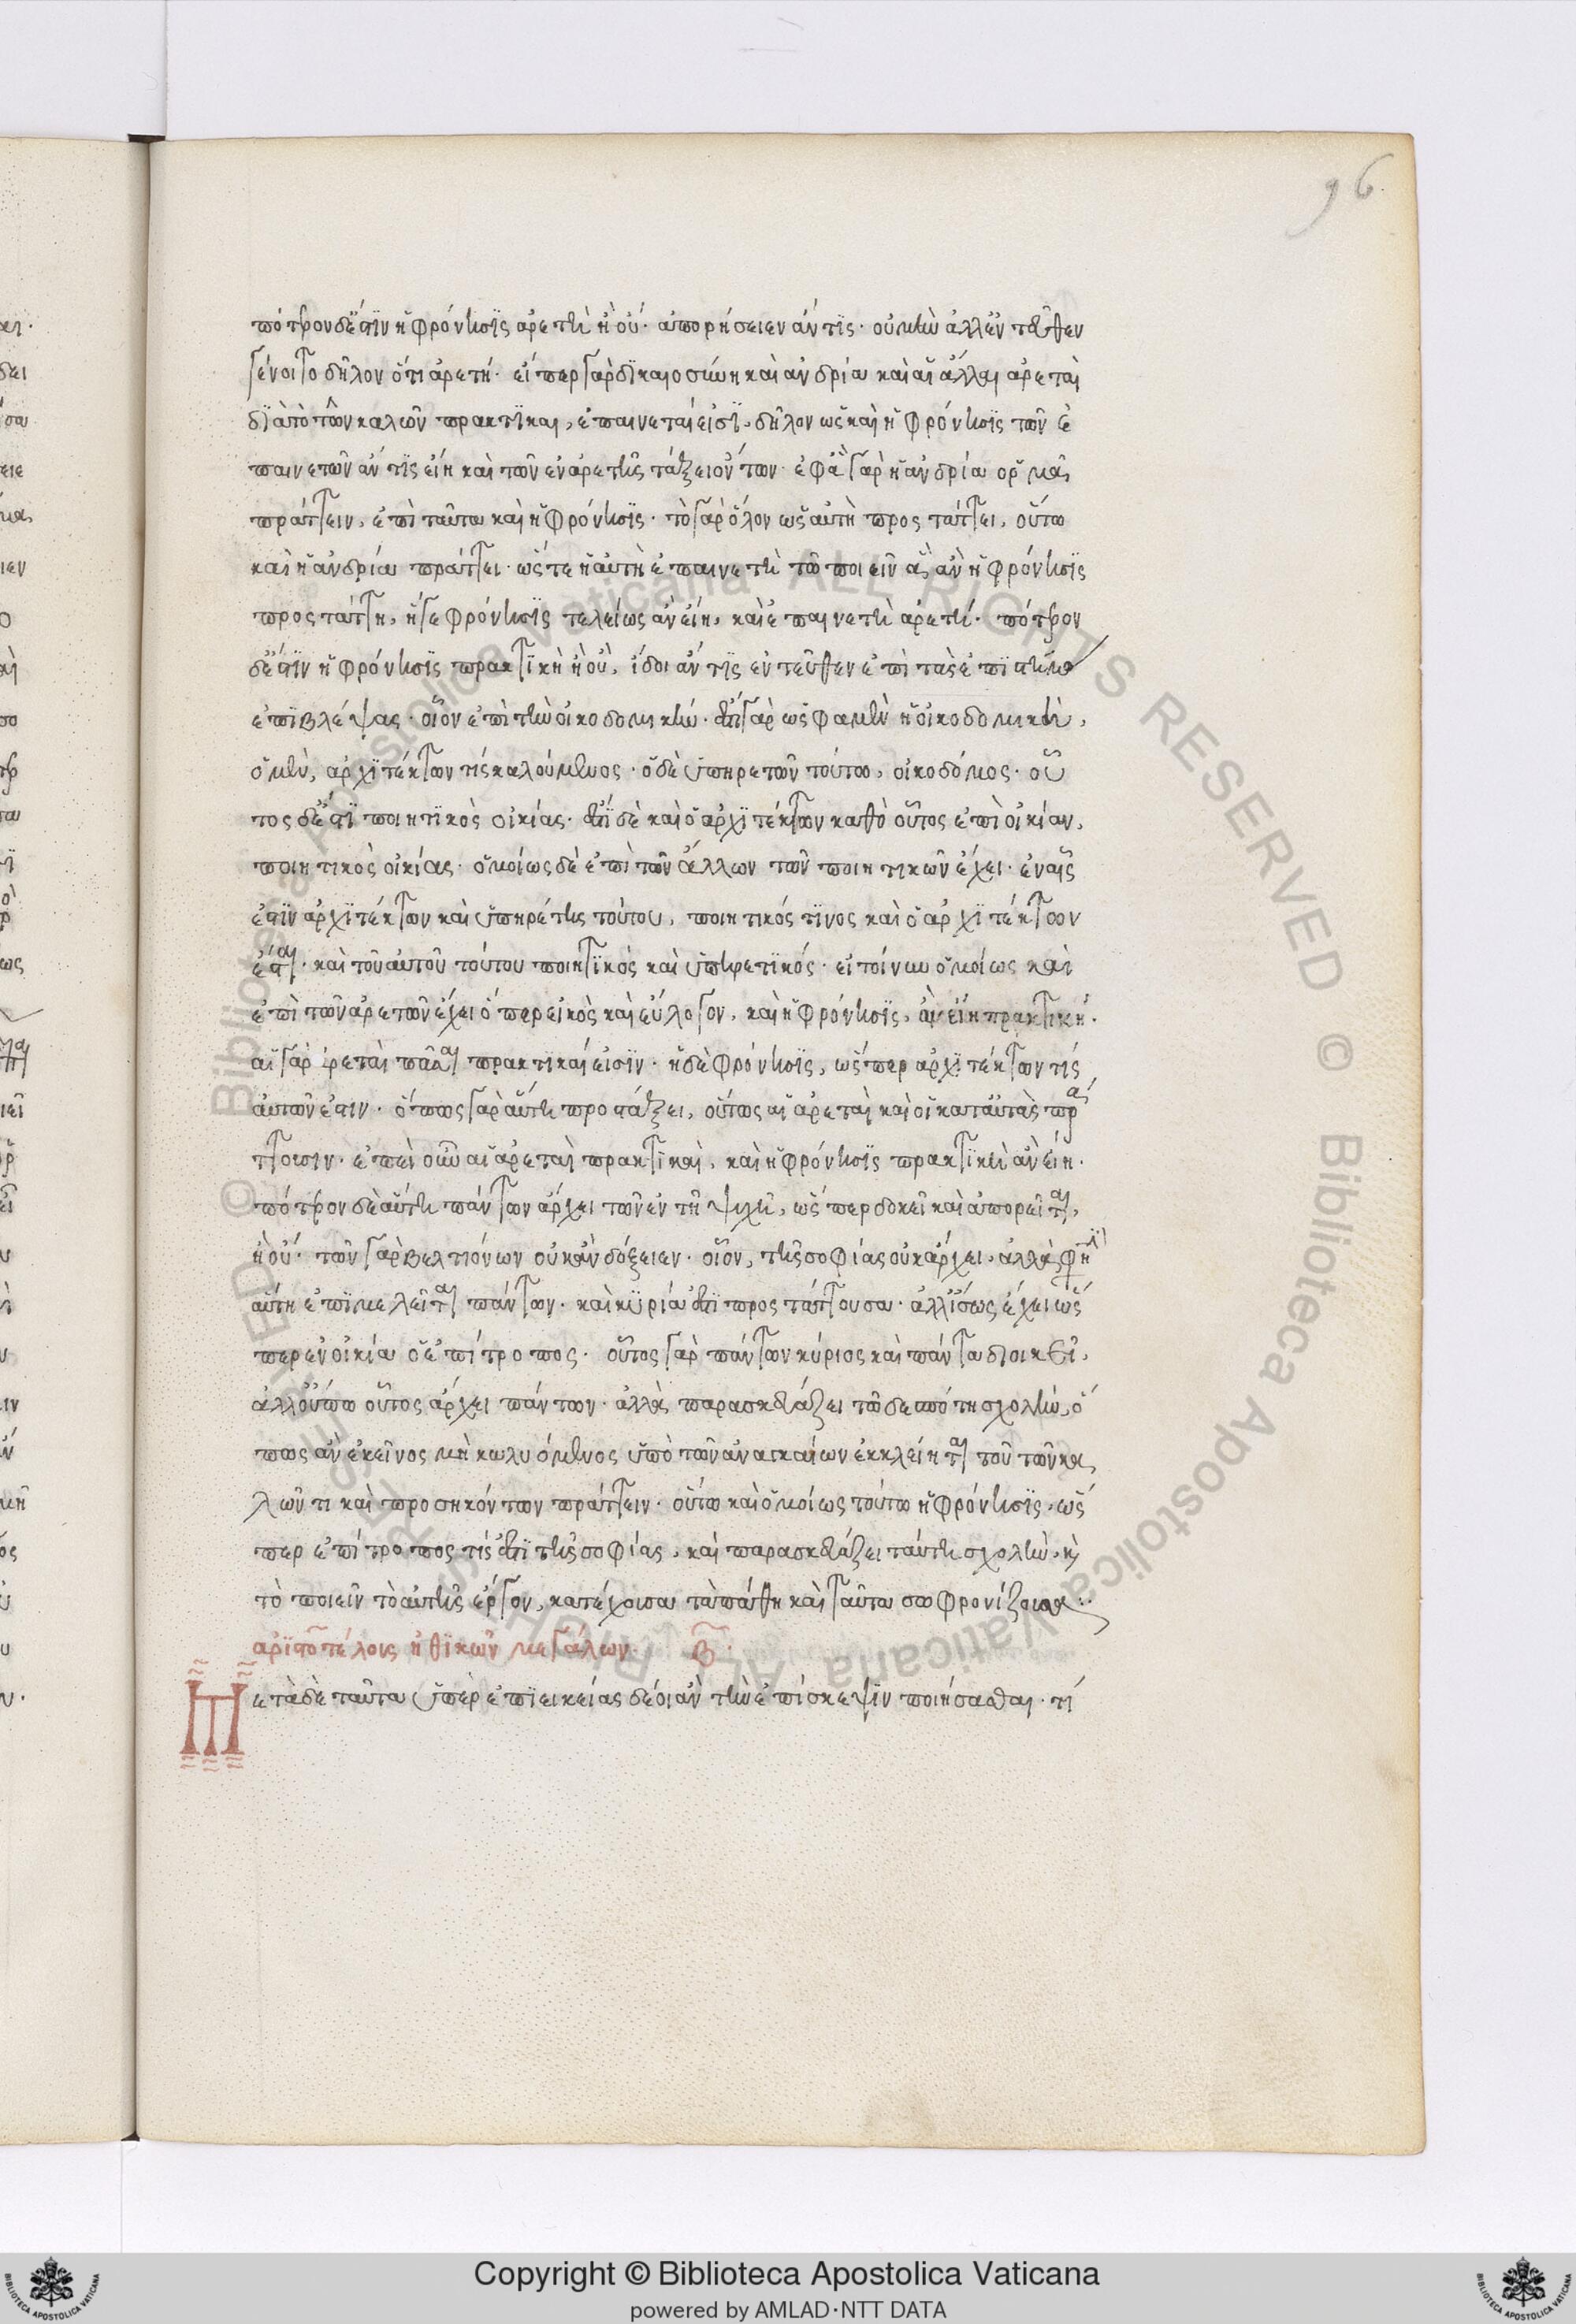 96
πότερον δέ ἐστὶν ἡ φρόνησις ἀρετὴ ἢ οὔ· ἀπορήσειεν ἄν τις· οὐ μὴν ἀλλ' ἐντεῦθεν
γένοιτο δῆλον ὅτι ἀρετή· εἴπερ γὰρ δικαιοσύνη καὶ ἀνδρία καὶ αἱ ἄλλαι ἀρεταὶ
διὰ τὸ τῶν καλῶν πρακτικαι, ἐπαινεταί εἰσι, δῆλον ὡς καὶ ἡ φρόνησις τῶν ἐ
παινετῶν ἄν τις εἴη καὶ τῶν ἐν ἀρετῆς τάξει ὄντων· ἐφ' ἃ γὰρ ἡ ἀνδρία ὁρμᾷ
πράττειν, ἐπὶ ταῦτα καὶ ἡ φρόνησις· τὸ γὰρ ὅλον ὡς αὐτὴ προστάττει, οὕτω
καὶ ἡ ἀνδρία πράττει· ὥστε ἡ αὐτὴ ἐπαινετὴ τῶ ποιεῖν ἃ ἂν ἡ φρόνησις
προστάττη, ἥ γε φρόνησις τελείως ἂν εἴη, καὶ ἐπαινετὴ ἀρετή· πότερον
δέ ἐστὶν ἡ φρόνησις πρακτικὴ ἢ οὒ, ἴδοι ἄν τις ἐντεῦθεν ἐπὶ τὰς ἐπιστήμας
ἐπιβλέψας· οἷον ἐπὶ τὴν οἰκοδομικήν· ἔστι γὰρ ὡς φαμὲν ἡ οἰκοδομικὴ,
ὁ μὲν, ἀρχιτέκτων τίς καλούμενος· ὁ δὲ ὑπηρετῶν τούτω, οἰκοδόμος· οὗ
τος δέ ἐστι ποιητικὸς οἰκίας· ἔστι δὲ καὶ ὁ ἀρχιτέκτων καθὸ οὗτος ἐπὶ οἰκίαν,
ποιητικὸς οἰκίας· ὁμοίως δὲ ἐπὶ τῶν ἄλλων τῶν ποιητικῶν ἔχει· ἐν αἷς
ἐστὶν ἀρχιτέκτων καὶ ὑπηρέτης τούτου, ποιητικός τινος καὶ ὁ ἀρχιτέκτων
ἔσται· καὶ τοῦ αὐτοῦ τούτου ποιητικὸς καὶ ὑπηρετικός· εἰ τοίνυν ὁμοίως καὶ
ἐπὶ τῶν ἀρετῶν ἔχει ὅπερ εἰκὸς καὶ εὔλογον, καὶ ἡ φρόνησις, ἂν εἴη πρακτική·
αἱ γὰρ ἀρεταὶ πᾶσαι πρακτικαί εἰσιν· ἡ δὲ φρόνησις, ὥσπερ ἀρχιτέκτων τίς
αὐτῶν ἐστιν· ὅπως γὰρ αὕτη προστάξει, οὕτως αἱ ἀρεταὶ καὶ οἱ κατ' αὐτὰς πρά
ττουσιν· ἐπεὶ οὖν αἱ ἀρεταὶ πρακτικαὶ, καὶ ἡ φρόνησις πρακτικὴ ἂν εἴη·
πότερον δὲ αὕτη πάντων ἄρχει τῶν ἐν τῆ ψυχῆ, ὥσπερ δοκεῖ καὶ ἀπορεῖται,
ἢ οὔ· τῶν γὰρ βελτιόνων οὐκ ἂν δόξειεν· οἷον, τῆς σοφίας οὐκ ἄρχει, ἀλλὰ φησὶν
αὕτη ἐπιμελεῖται πάντων· καὶ κυρία ἐστὶ προστάττουσα· ἀλλ' ἴσως ἔχει ὥσ
περ ἐν οἰκία ὁ ἐπίτροπος· οὗτος γὰρ πάντων κύριος καὶ πάντα διοικεῖ,
ἀλλ' οὔπω οὗτος ἄρχει πάντων· ἀλλὰ παρασκευάζει τῶ δεσπότη σχολὴν, ὅ
πως ἂν ἐκεῖνος μὴ κωλυόμενος ὑπὸ τῶν ἀναγκαίων ἐκκλείηται τοῦ τῶν κα
λῶν τι καὶ προσηκόντων πράττειν· οὕτω καὶ ὁμοίως τούτω ἡ φρόνησις, ὥσ
περ ἐπίτροπος τίς ἐστὶ τῆς σοφίας, καὶ παρασκευάζει ταύτη σχολὴν, καὶ
τὸ ποιεῖν τὸ αὐτῆς ἔργον, κατέχουσα τὰ πάθη καὶ ταῦτα σωφρονίζουσα:·
ἀριστοτέλους ἠθικῶν μεγάλων. β·
Μετὰ δὲ ταῦτα ὑπὲρ ἐπιεικείας δέοι ἂν τὴν ἐπίσκεψιν ποιήσασθαι· τί
Copyright © Biblioteca Apostolica Vaticana
powered by AMLAD·NTT DATA